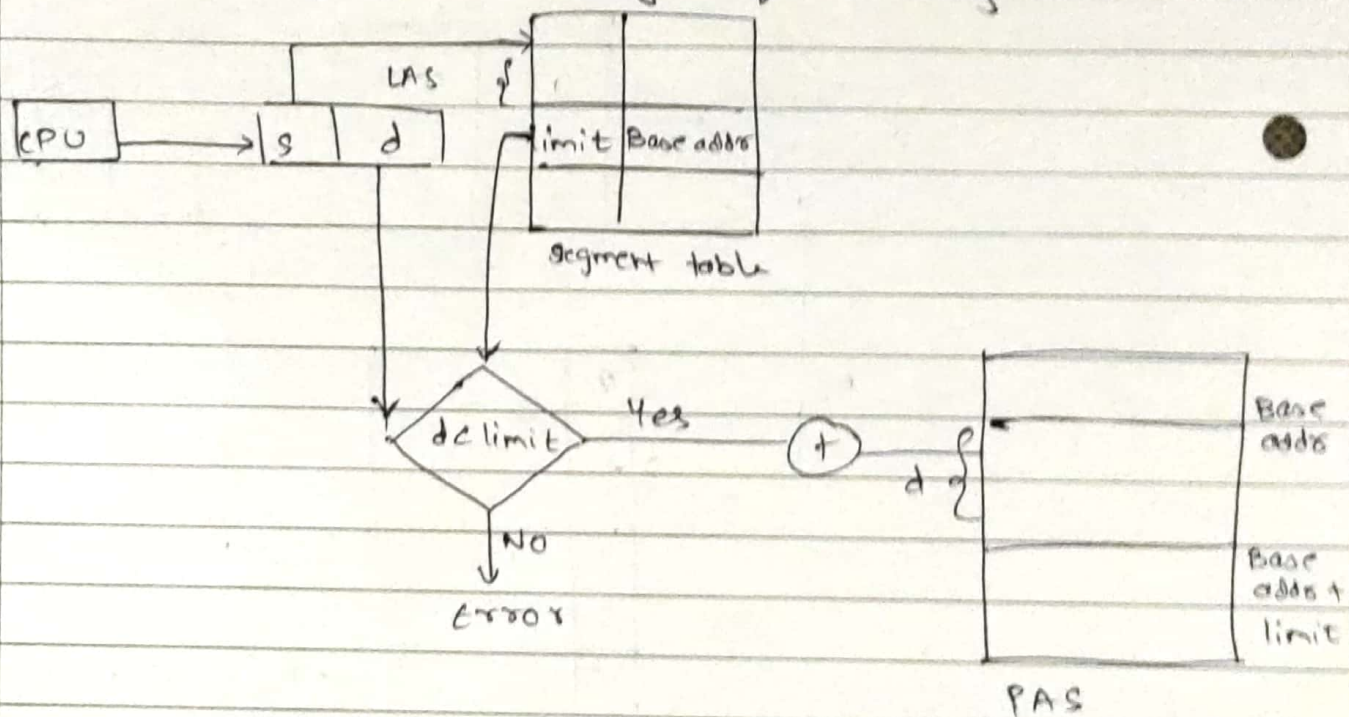 LAS
CPU
s
d
limit
Base addr
segment table
d < limit
Yes
+
d
Base
addr
NO
Error
Base
addr +
limit
PAS